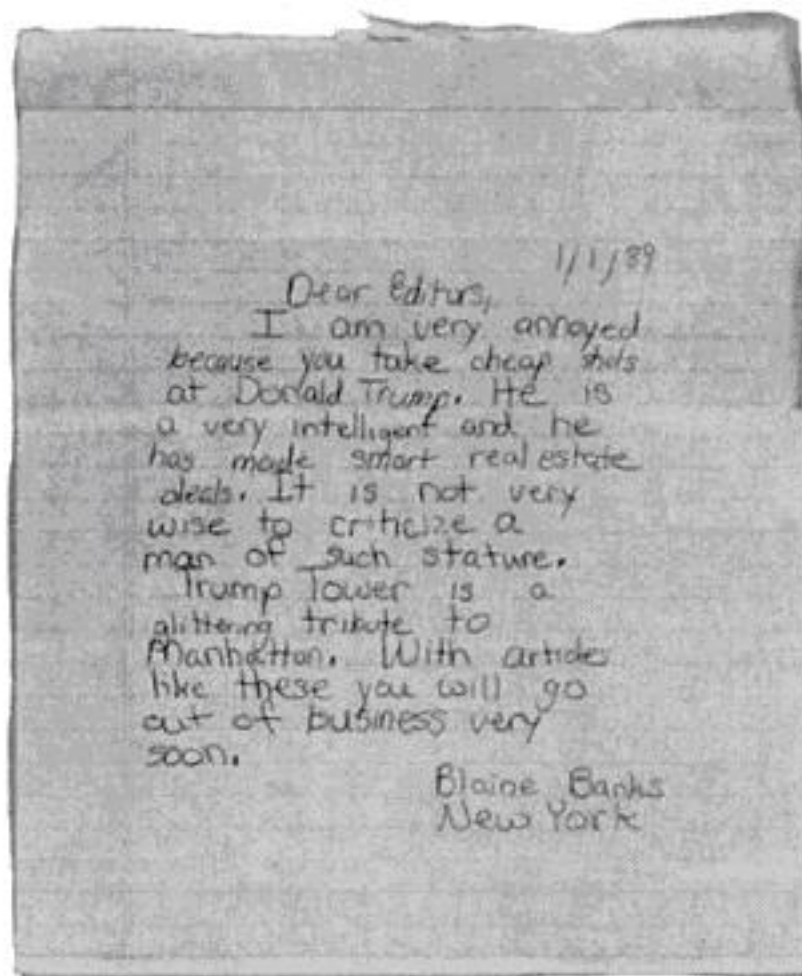 1/1/89
Dear Editurs,
I am very annoyed
because you take cheap shots
at Donald Trump. He is
a very intelligent and he
has made smart real estate
deals. It is not very
wise to criticize a
man of such stature.
Trump Tower is a
glittering tribute to
Manhattan. With articles
like these you will go
out of business very
soon.
Blaine Banks
New York